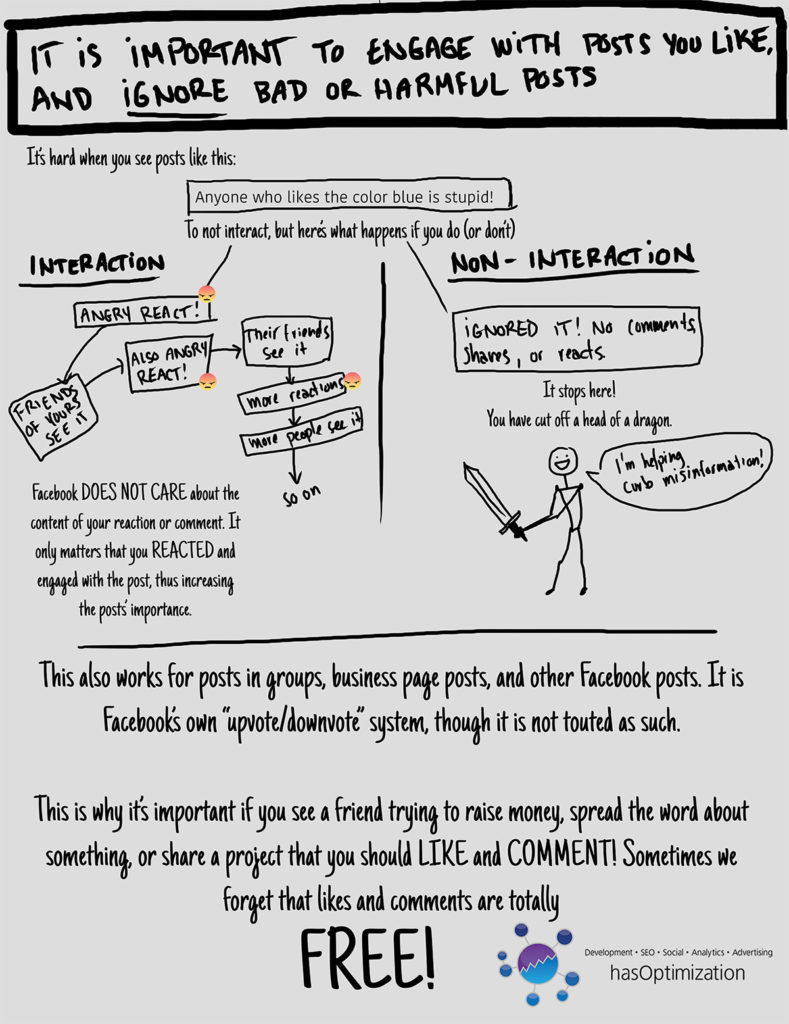 IT IS IMPORTANT TO ENGAGE WITH POSTS YOU LIKE,
AND IGNORE BAD OR HARMFUL POSTS
It's hard when you see posts like this:
Anyone who likes the color blue is stupid!
To not interact, but here's what happens if you do (or don't)
INTERACTION
ANGRY REACT!
FRIENDS
OF YOURS
SEE IT
ALSO ANGRY
REACT!
Their friends
see it
more reactions
more people see it
so on
Facebook DOES NOT CARE about the
content of your reaction or comment. It
only matters that you REACTED and
engaged with the post, thus increasing
the posts' importance.
NON-INTERACTION
IGNORED IT! No comments,
shares, or reacts.
It stops here!
You have cut off a head of a dragon.
I'm helping
curb misinformation!
This also works for posts in groups, business page posts, and other Facebook posts. It is
Facebook's own "upvote/downvote" system, though it is not touted as such.
This is why it's important if you see a friend trying to raise money, spread the word about
something, or share a project that you should LIKE and COMMENT! Sometimes we
forget that likes and comments are totally
FREE!
Development • SEO • Social • Analytics • Advertising
hasOptimization